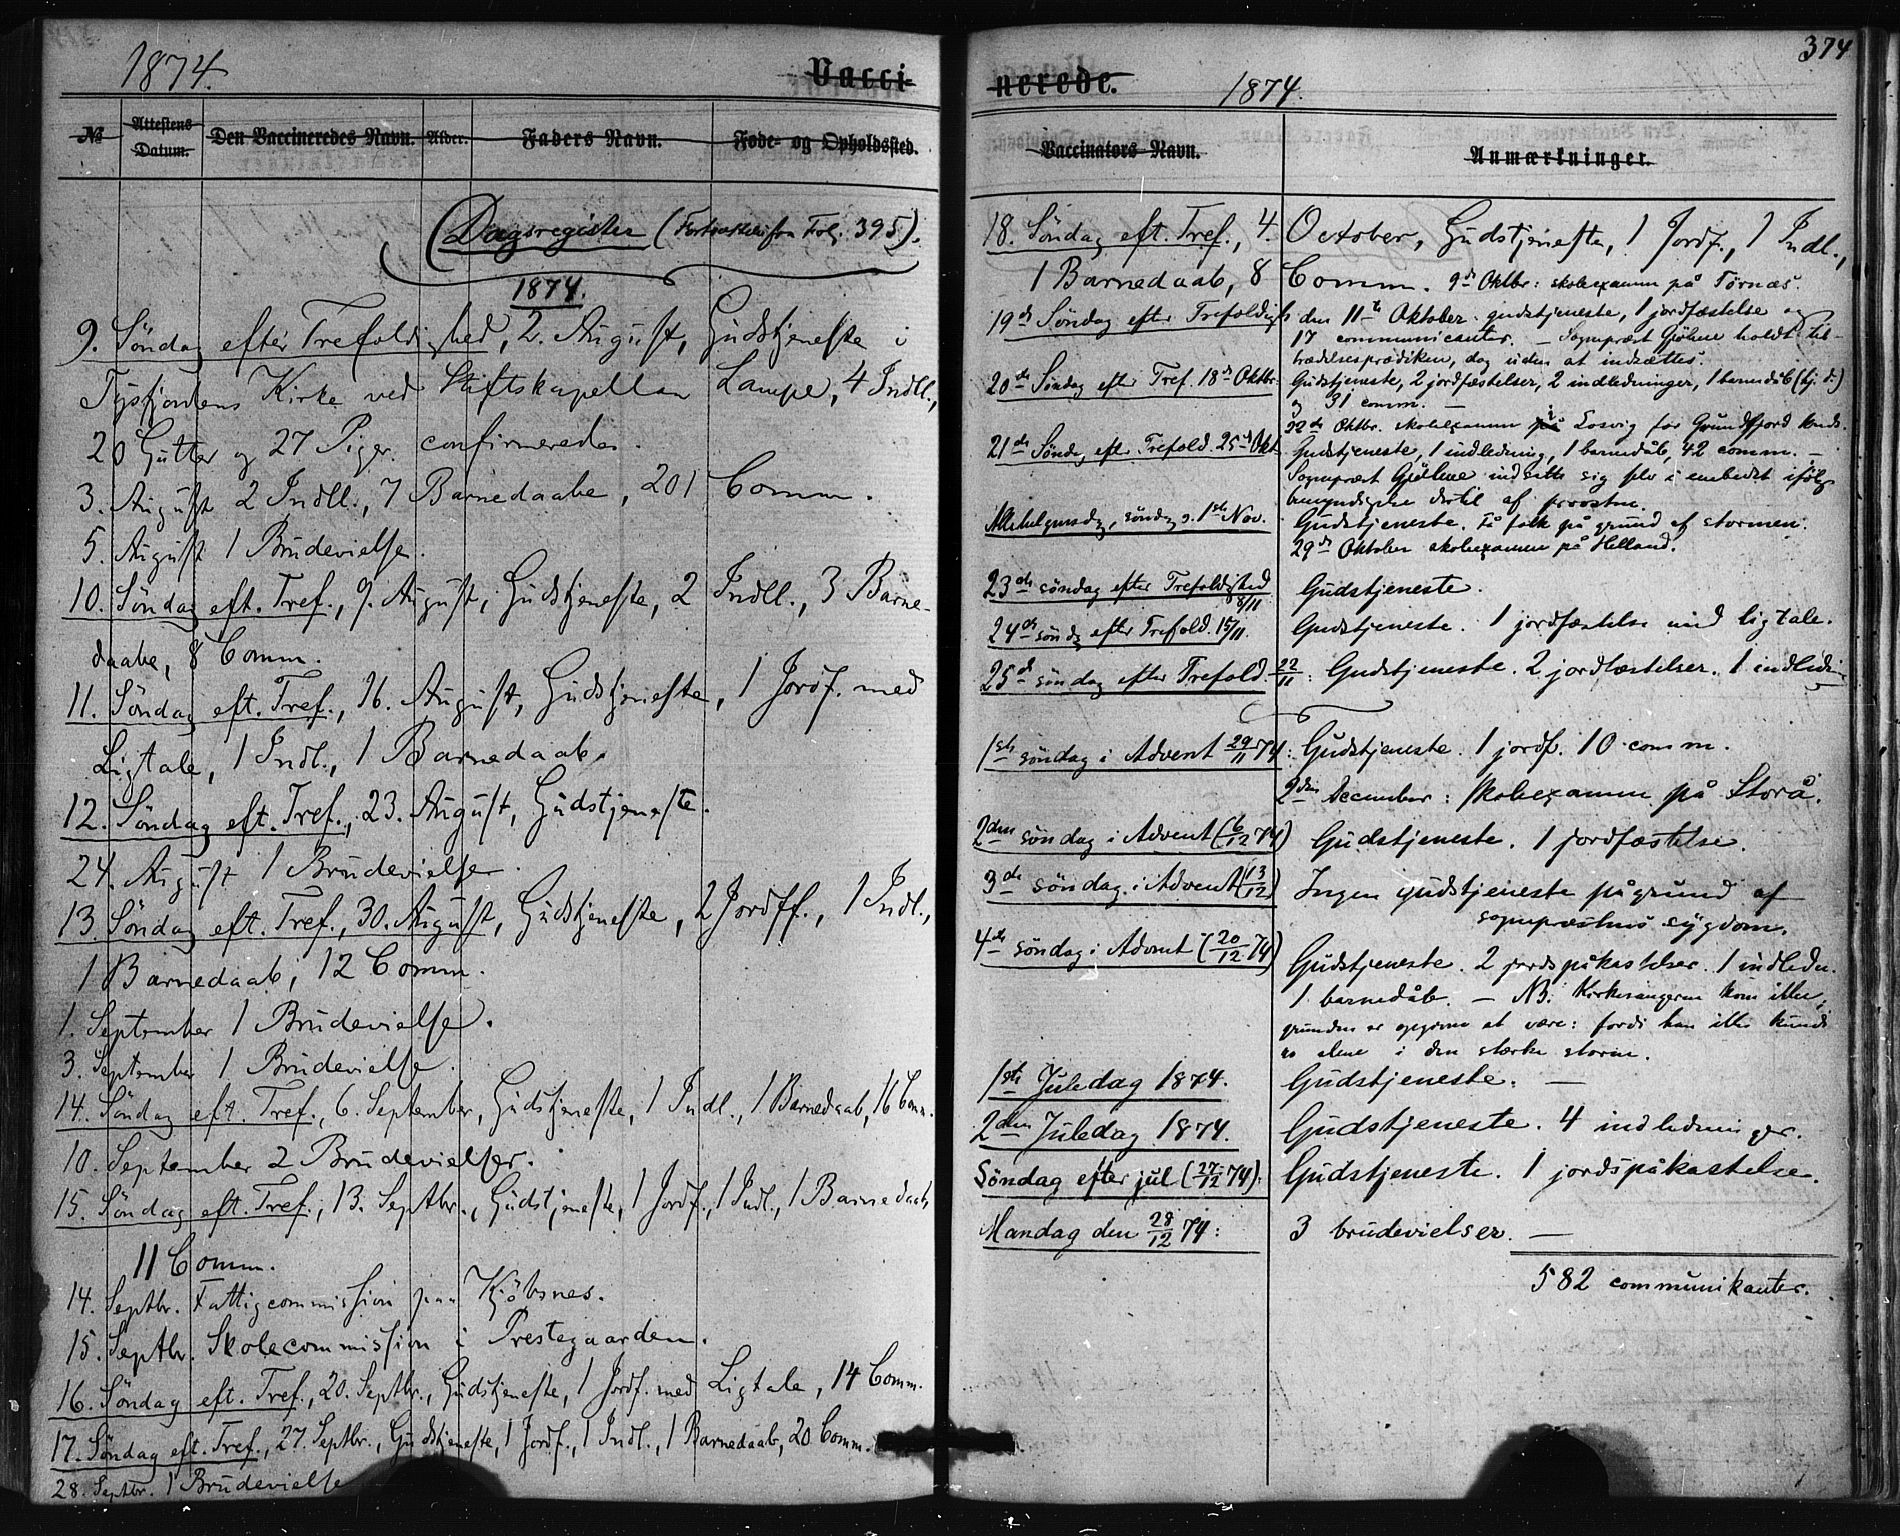 1874.
Vacci-
№
Attestens
Datum.
Den Vaccineredes Navn.
Alder.
Faders Navn.
Føde- og Opholdssted.
(Dagsregister (Fortsættelse fra Fol. 395).
1874.
9. Söndag efter Trefoldighed, 2. August, Gudstjeneste i
Tysfjordens Kirke ved Stiftskapellan Lampe, 4 Indll.,
20 Gutter og 27 Piger confirmeredes.
3. August 2 Indll., 7 Barnedaabe, 201 Comm.
5. August 1 Brudevielse.
10. Söndag eft. Tref., 9. August, Gudstjeneste, 2 Indll., 3 Barne-
daabe, 8 Comm.
11. Söndag eft. Tref., 16. August, Gudstjeneste, 1 Jordf. med
Ligtale, 1 Indl., 1 Barnedaab.
12. Söndag eft. Tref., 23. August, Gudstjeneste.
24. August 1 Brudevielse.
13. Söndag eft. Tref., 30. August, Gudstjeneste, 2 Jordff., 1 Indl.,
1 Barnedaab, 12 Comm.
1. September 1 Brudevielse.
3. September 1 Brudevielse.
14. Söndag eft. Tref., 6. September, Gudstjeneste, 1 Indl., 1 Barnedaab, 16 Comm.
10. September 2 Brudevielser.
15. Söndag eft. Tref., 13. Septbr., Gudstjeneste, 1 Jordf., 1 Indl., 1 Barnedaab
11 Comm.
14. Septbr. Fattigcommission paa Kjöbsnes.
15. Septbr. Skolecommission i Prestegaarden.
16. Söndag eft. Tref., 20. Septbr., Gudstjeneste, 1 Jordf. med Ligtale, 14 Comm.
17. Söndag eft. Tref., 27. Septbr., Gudstjeneste, 1 Jordf., 1 Indl., 1 Barnedaab, 20 Comm.
28. Septbr. 1 Brudevielse
374
nerede.
1874.
Vaccinators Navn.
Anmærkninger.
18. Söndag eft. Tref., 4. October, Gudstjeneste, 1 Jordf., 1 Indl.,
1 Barnedaab, 8 Comm. 9de Oktbr: skolexamen på Tørnæs.
19de Söndag efter Trefoldigh den 11te Oktober. gudstjeneste, 1 jordfæstelse og
17 communicanter. – Sognepræst Gjölme holdt til-
trædelsesprædiken, dog uden at indsættes.
20de Söndag efter Tref. 18de Oktbr: Gudstjeneste, 2 jordfæstelser, 2 indledninger, 1 barnedåb (hj. d.)
og 31 comm. –
22de Oktbr. skolexamen i Losvig for Grundfjord kreds.
21de Söndag efter Trefold. 25de Okt. Gudstjeneste, 1 indledning, 1 barnedåb, 42 comm. –
Sognepræst Gjölme indsatte sig selv i embedet ifölge
bemyndigelse dertil af provsten.
Allehelgensdag, söndag d. 1ste Nov. Gudstjeneste. Få folk på grund af stormen.
29de Oktober skolexamen på Helland.
23de söndag efter Trefoldighed 8/11 Gudstjeneste.
24de sönd. efter Trefold. 15/11. Gudstjeneste. 1 jordfæstelse med ligtale.
25de söndag efter Trefold 22/11: Gudstjeneste. 2 jordfæstelser. 1 indledn
1ste söndag i Advent 29/11 74: Gudstjeneste. 1 jordf. 10 comm.
2den December: skolexamen på Storå.
2den söndag i Advent (6/12 74) Gudstjeneste. 1 jordfæstelse.
3de söndag i Advent (13/12) Ingen gudstjeneste på grund af
sognepræstens sygdom.
4de söndag i Advent (20/12 74) Gudstjeneste. 2 jordspåkastelser. 1 indledn.
1 barnedåb. – NB. Kirkesangeren kom ikke;
grunden er opgiven at være: fordi han ikke kunde
ro alene i den stærke storm.
1ste Juledag 1874. Gudstjeneste. –
2den Juledag 1874. Gudstjeneste. 4 indledninger.
Söndag efter jul (27/12 74): Gudstjeneste. 1 jordspåkastelse.
Mandag den 28/12 74: 3 brudevielser. –
582 communikanter.